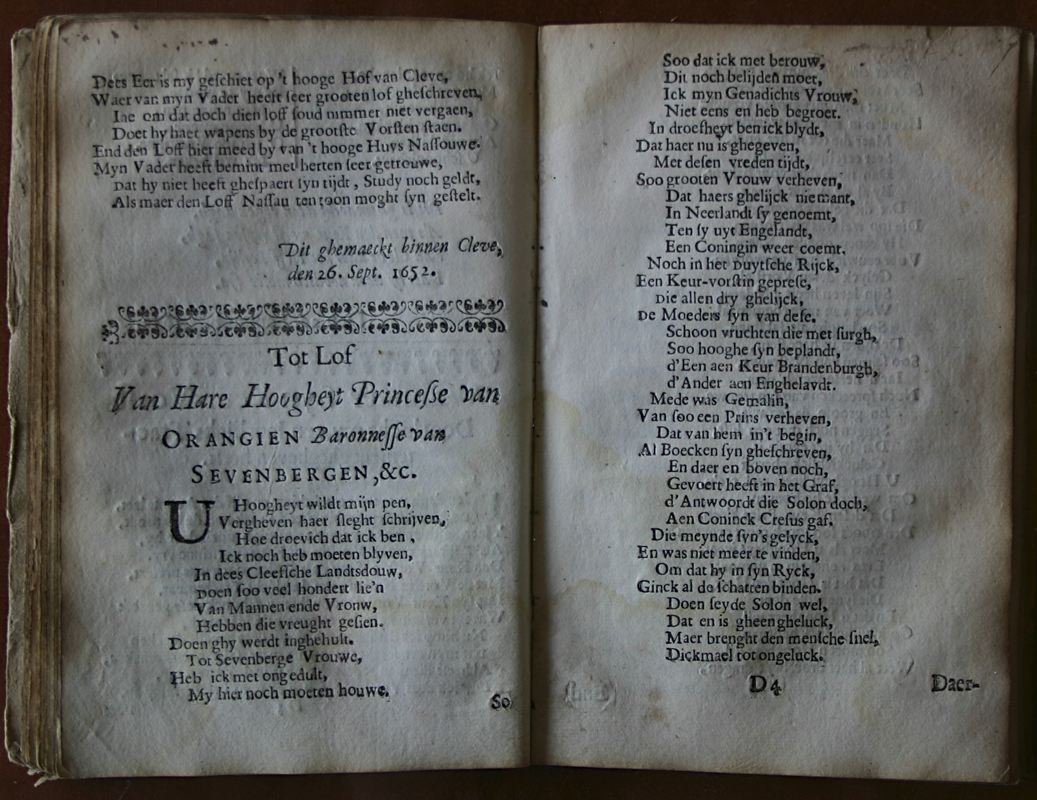 Dees Eer is my geſchiet op 't hooge Hof van Cleve,
Waer van myn Vader heeft ſeer grooten lof gheſchreven,
Iae om dat doch dien loff ſoud nimmer niet vergaen,
Doet hy haer wapens by de grootſte Vorſten ſtaen.
End den Loff hier meed by van 't hooge Huys Naſſouwe.
Myn Vader heeft bemint met herten ſeer getrouwe,
Dat hy niet heeft gheſpaert ſyn tijdt, Study noch geldt,
Als maer den Loff Naſſau ten toon moght ſyn geſtelt.
Dit ghemaeckt binnen Cleve,
den 26. Sept. 1652.
Tot Lof
Van Hare Hoogheyt Princeſſe van
ORANGIEN Baronneſſe van
SEVENBERGEN, &c.
U Hoogheyt wildt mijn pen,
Vergheven haer ſleght ſchrijven,
Hoe droevich dat ick ben,
Ick noch heb moeten blyven,
In dees Cleefſche Landtsdouw,
Doen ſoo veel hondert lie'n
Van Mannen ende Vronw,
Hebben die vreught geſien.
Doen ghy werdt inghehult.
Tot Sevenberge Vrouwe,
Heb ick met ongedult,
My hier noch moeten houwe.
So
Soo dat ick met berouw,
Dit noch belijden moet,
Ick myn Genadichts Vrouw,
Niet eens en heb begroet.
In droefheyt ben ick blydt,
Dat haer nu is ghegeven,
Met deſen vreden tijdt,
Soo grooten Vrouw verheven,
Dat haers ghelijck niemant,
In Neerlandt ſy genoemt,
Ten ſy uyt Engelandt,
Een Coningin weer coemt.
Noch in het Duytſche Rijck,
Een Keur-vorſtin gepreſe,
Die allen dry ghelijck,
De Moeders ſyn van deſe.
Schoon vruchten die met ſurgh,
Soo hooghe ſyn beplandt,
d'Een aen Keur Brandenburgh,
d'Ander aen Enghelavdt.
Mede was Gemalin,
Van ſoo een Prins verheven,
Dat van hem in't begin,
Al Boecken ſyn gheſchreven,
En daer en boven noch,
Gevoert heeft in het Graf,
d'Antwoordt die Solon doch,
Aen Coninck Creſus gaf.
Die meynde ſyn's gelyck,
En was niet meer te vinden,
Om dat hy in ſyn Ryck,
Ginck al de ſchatten binden.
Doen ſeyde Solon wel,
Dat en is gheen gheluck,
Maer brenght den menſche ſnel,
Dickmael tot ongeluck.
D4
Daer-